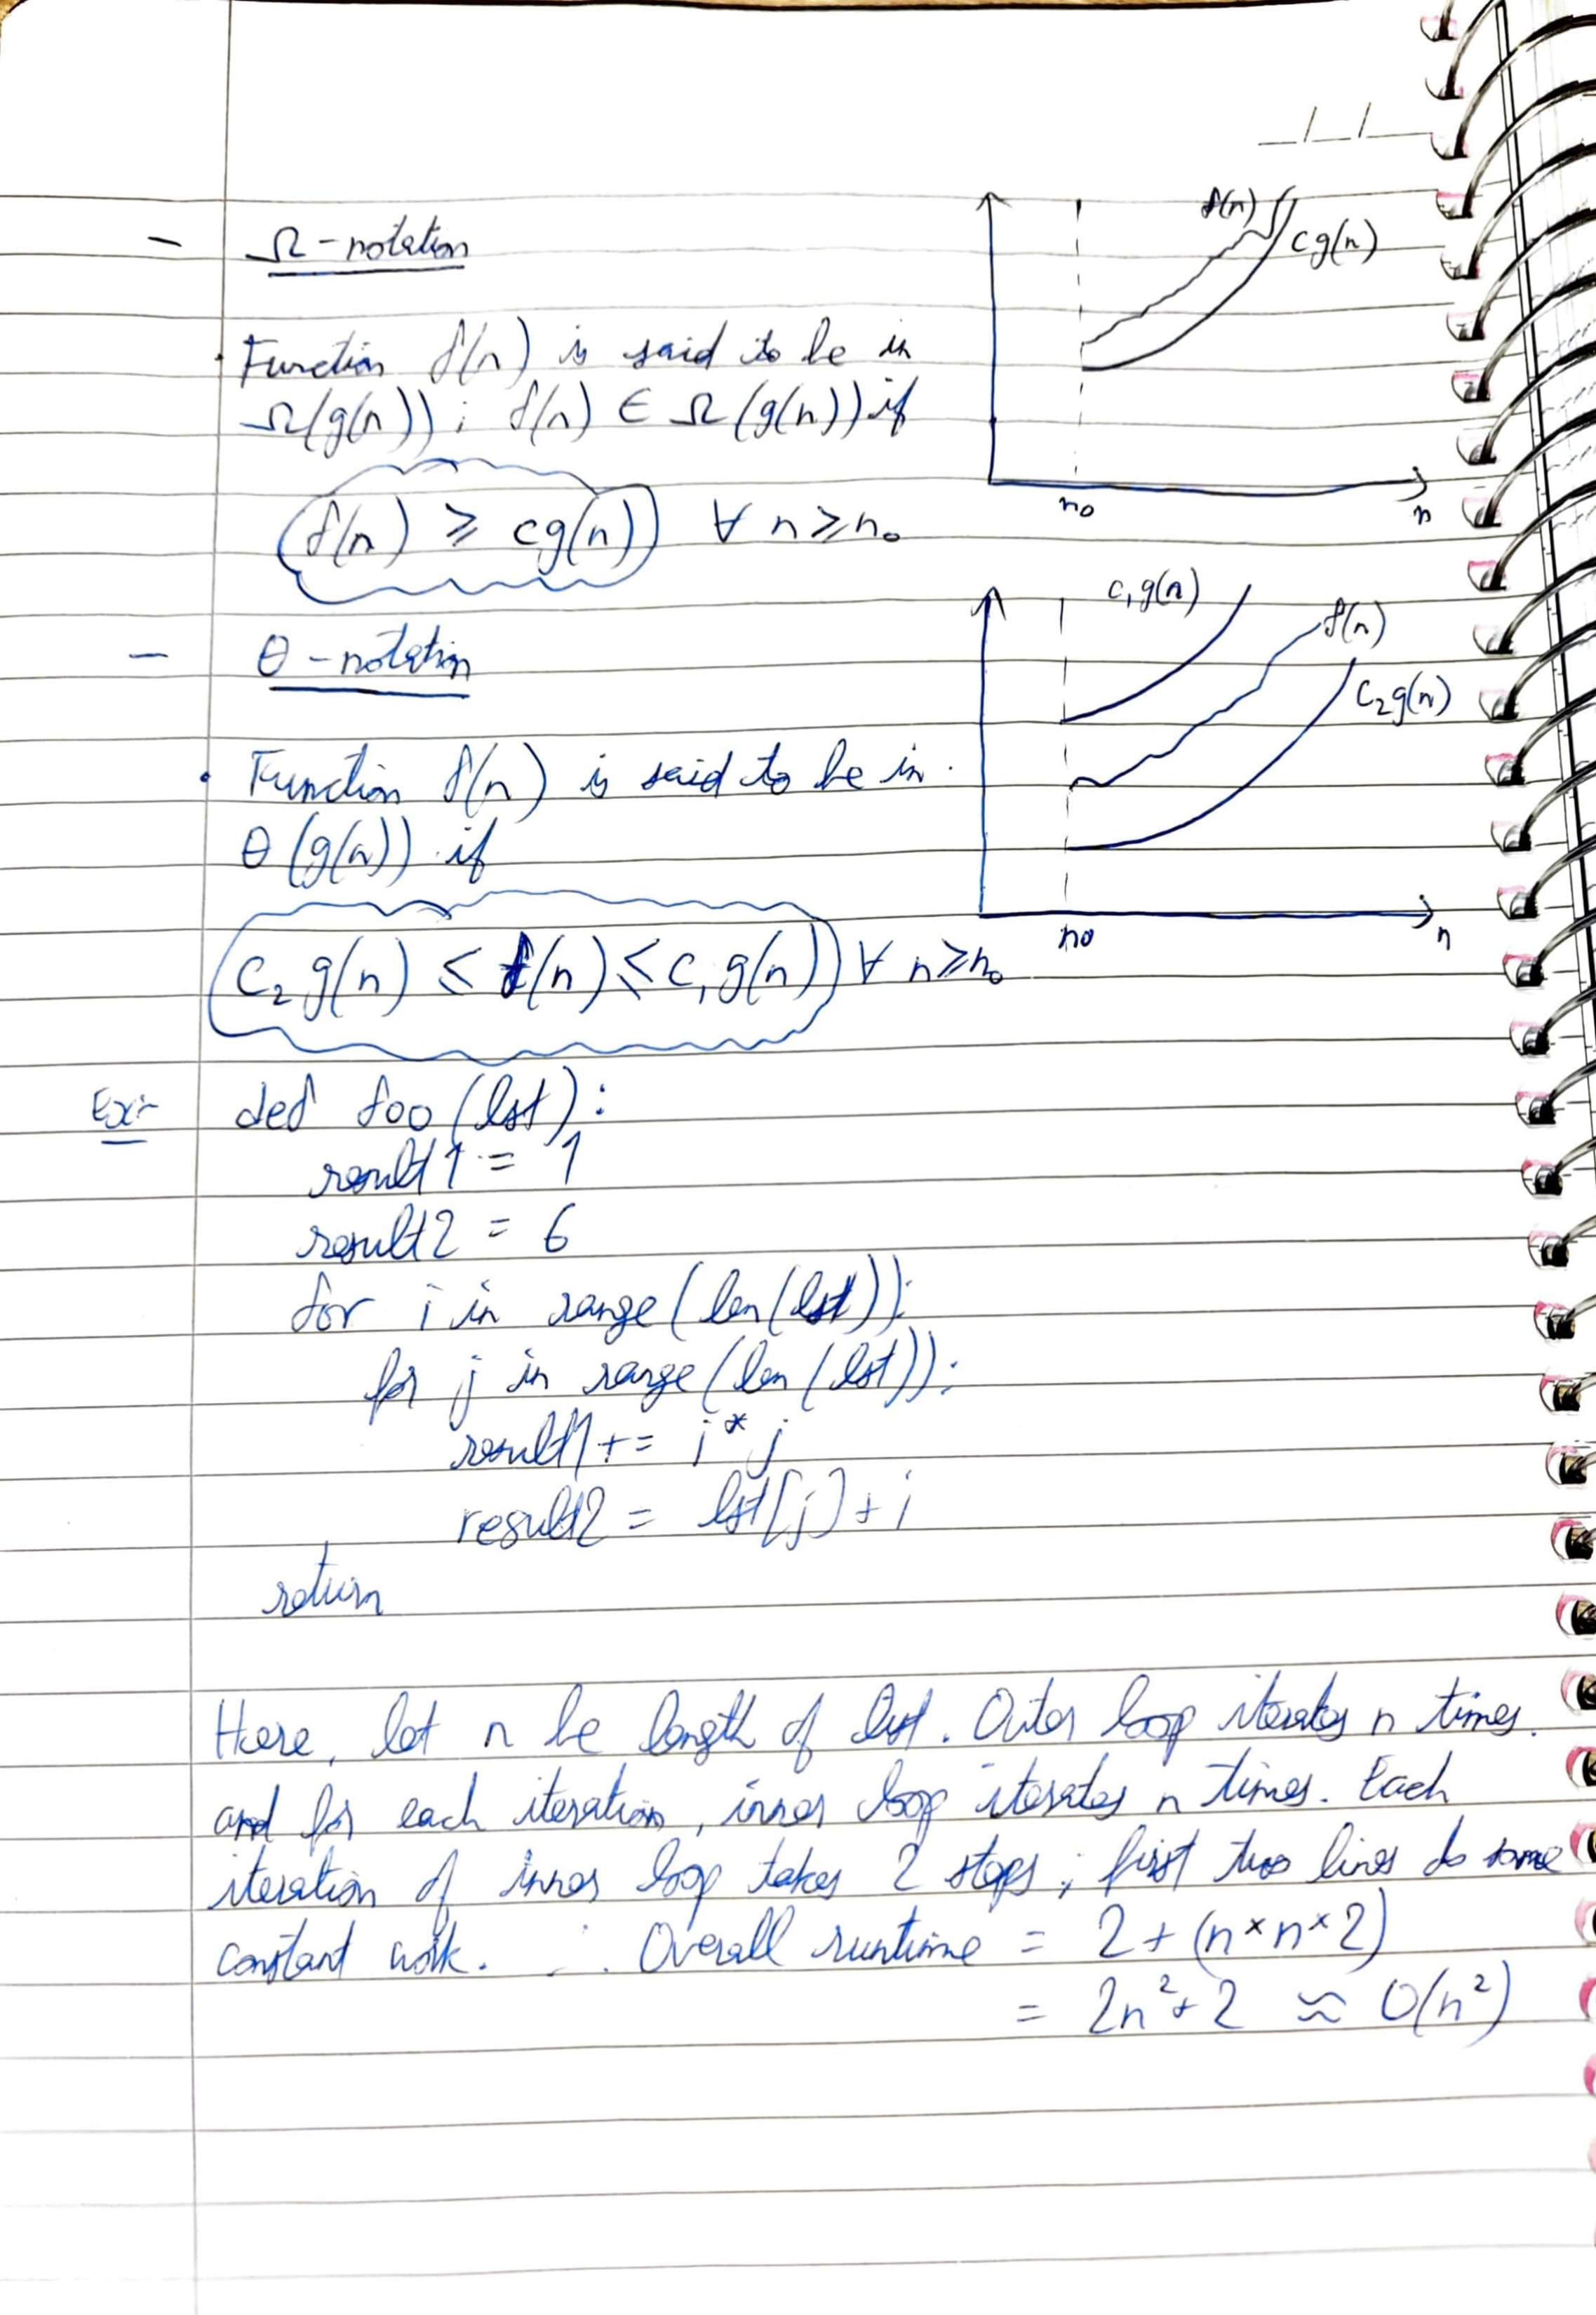 _ / / _
- Ω - notation
f(n)
cg(n)
n₀
n
. Function f(n) is said to be in
Ω(g(n)) ; f(n) ∈ Ω (g(n)) if
f(n) ≥ cg(n) ∀ n ≥ n₀
- θ - notation
c₁g(n)
f(n)
C₂g(n)
n₀
n
. Function f(n) is said to be in.
θ (g(n)) if
C₂ g(n) ≤ f(n) ≤ c₁ g(n) ∀ n ≥ n₀
Ex:- def foo (lst):
result1 = 1
result2 = 6
for i in range (len (lst)):
for j in range (len (lst)):
result1 += i * j
result2 = lst[j] + i
return
Here, let n be length of lst. Outer loop iterates n times.
and for each iteration, inner loop iterates n times. Each
iteration of inner loop takes 2 steps ; first two lines do some
constant work. ∴ Overall runtime = 2 + (n × n × 2)
= 2n² + 2 ≈ O(n²)